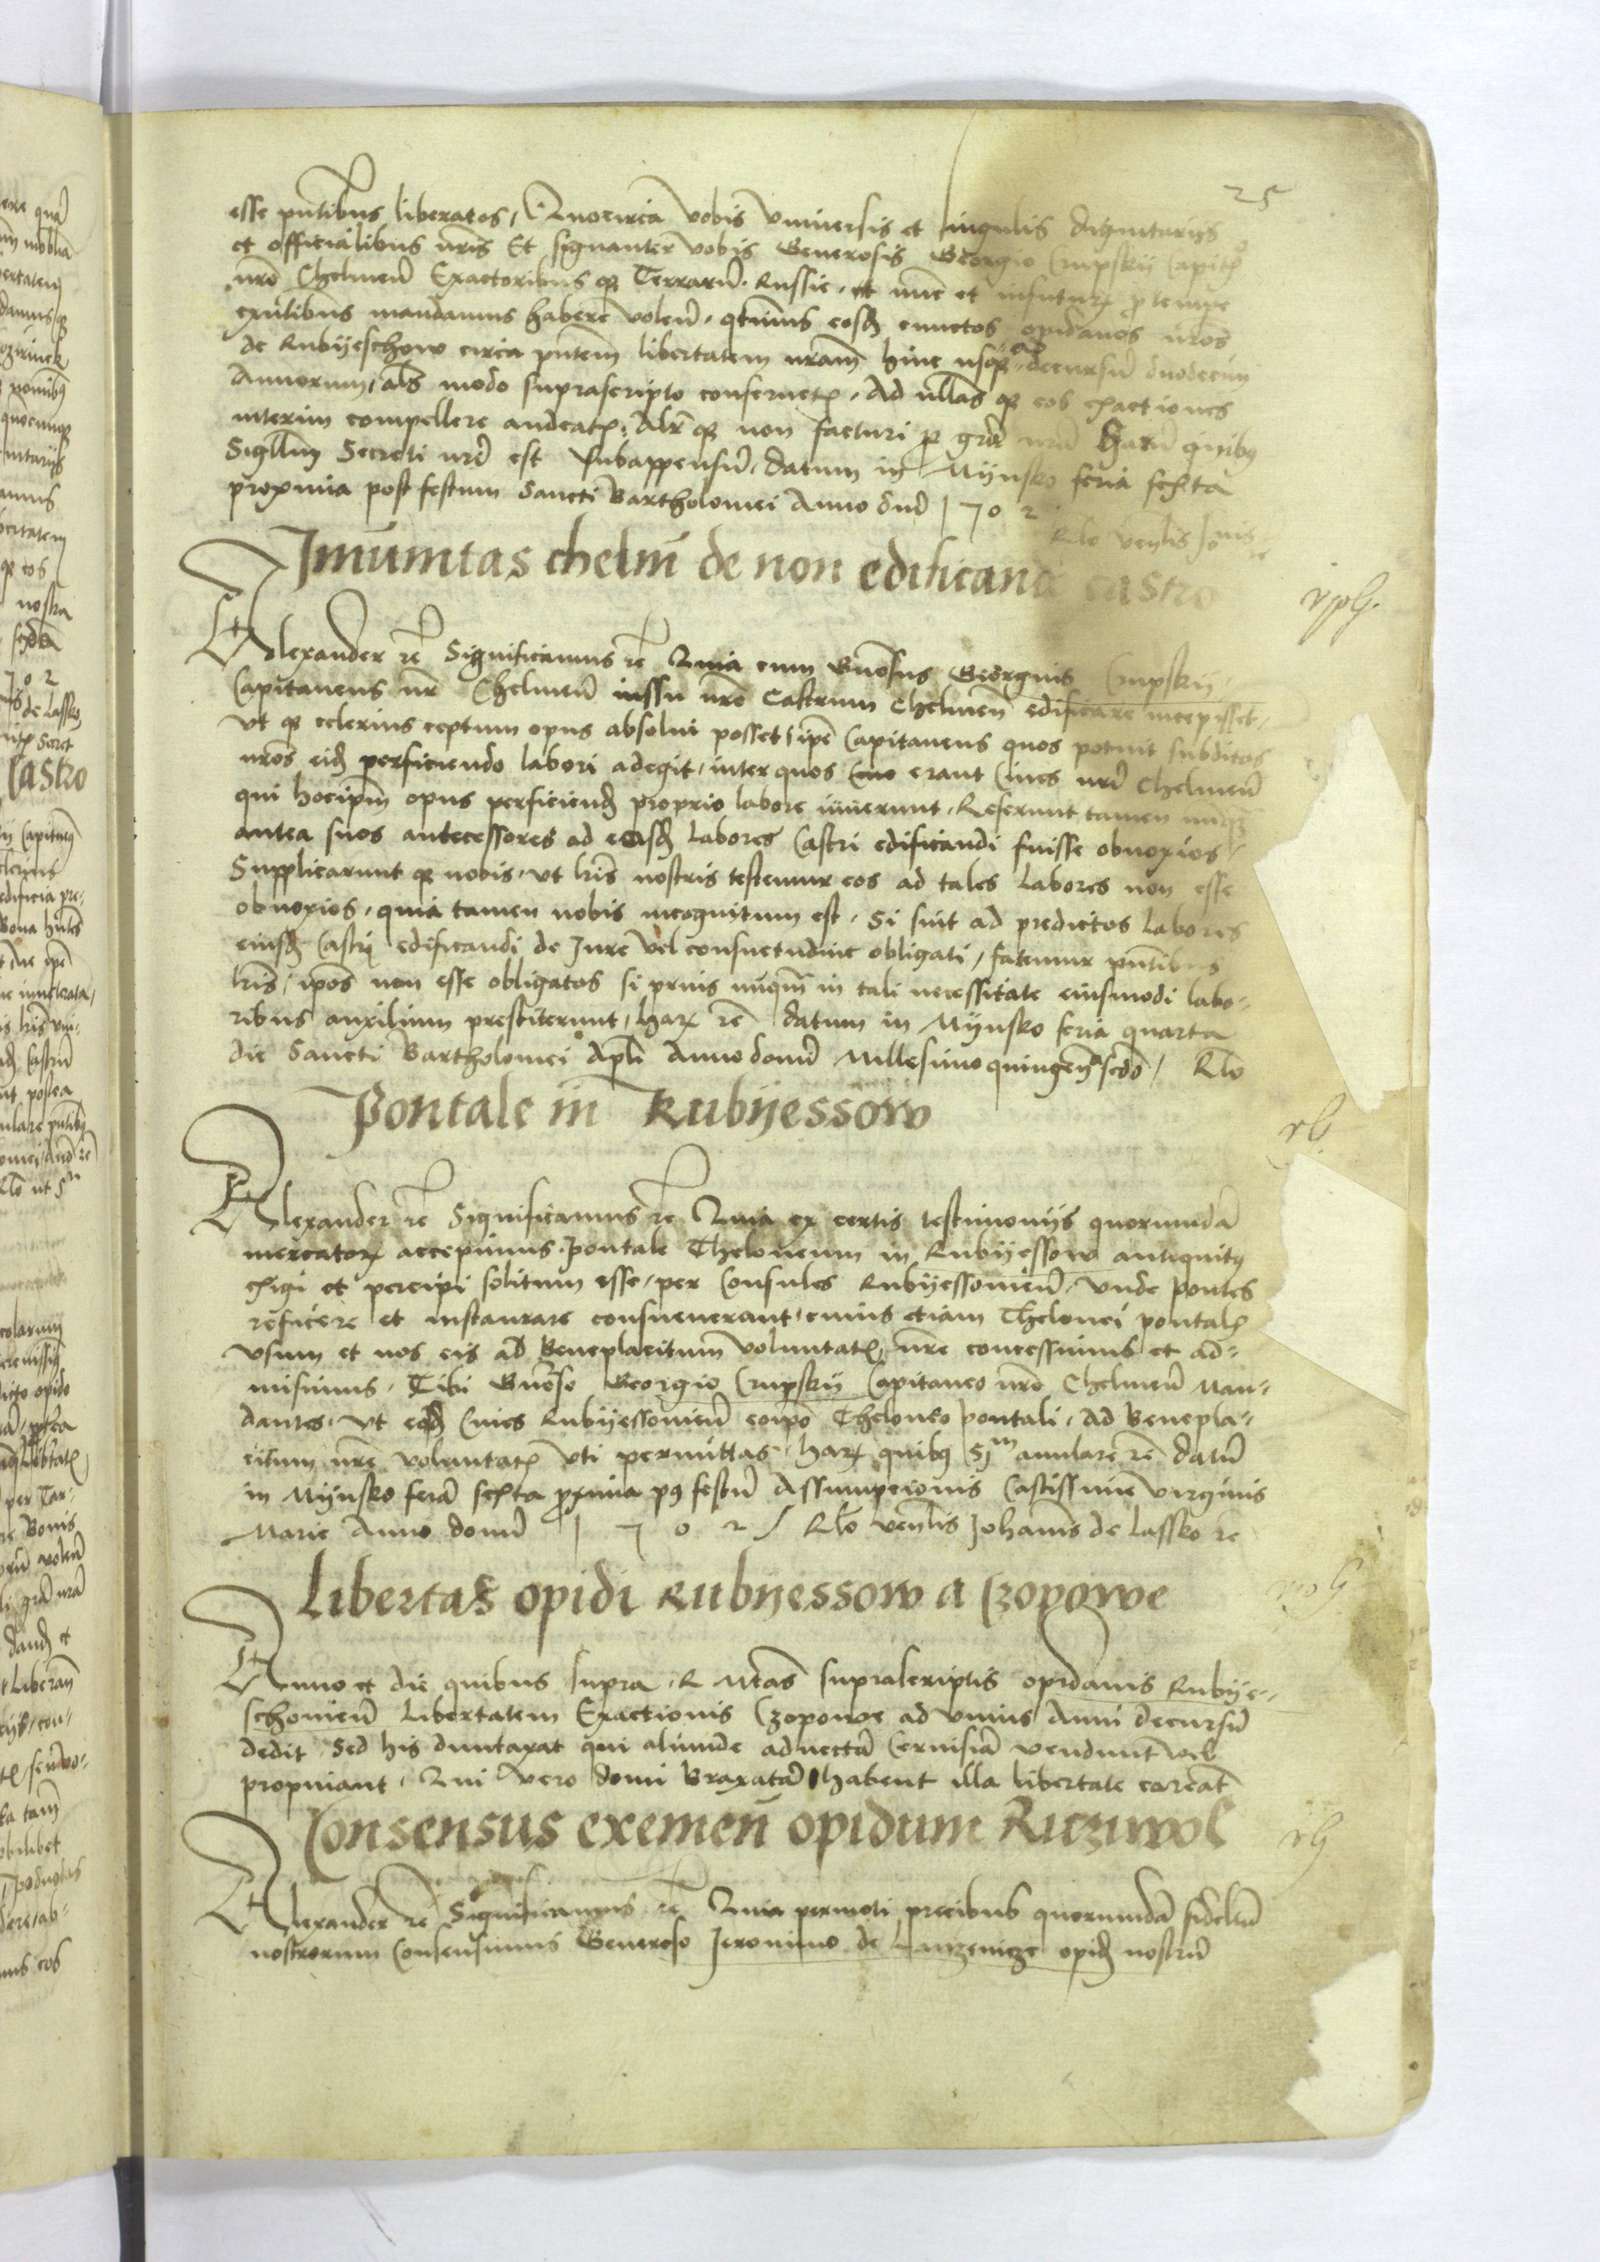 25
esse pñtibus liberatos, Quocirca vobis vniuersis et singulis dignitarijs
et officialibus nr̃is Et signanter vobis Generosis Georgio Crupskij Capitõ
nrõ Chelmeñ Exactoribus qȝ Terrarũ Russie, et nũc et infuturȝ p tempe
exñtibus mandamus habere voleñ, qtinus eosdȝ cunctos opidanos nr̃os
de Rubijeschow circa pñtem libertatem nrãm hinc usqȝ ad decursũ duodecim
Annorum, als modo suprascripto conseruetȝ, Ad ullas qȝ eos exactiones
interim compellere audeatȝ, Alr̃ qȝ non facturi p grã nrã Harũ quibȝ
Sigillũ Secreti nrĩ est Subappensũ, datum in Mijnsko feria sexta
proxima post festum Sancti Bartholomei Anno dnĩ 1702
Rlo venlis Jo
Jmũnitas chelm̃ de non edificand castro
Alexander rẽ Significamus rẽ Quia cum Gnõsus Georgius Crupskij
Capitaneus nr̃ Chelmeñ iussu nrõ Castrum Chelmeñ edificare incepisset,
Vt qȝ celerius ceptum opus absolui posset, ipẽ Capitaneus quos potuit subditos
nrõs eidȝ perficiendo labori adegit, inter quos erant Ciues nrĩ Chelmeñ
qui hocipm̃ opus perficiendȝ proprio labore iuuerunt, Referunt tamen nũqȝ
antea suos antecessores ad eosdȝ Labores Castri edificandi fuisse obnoxios,
Supplicarunt qȝ nobis, vt lrĩs nostris testemur eos ad tales Labores non esse
obnoxios, quia tamen nobis incognitum est, Si sint ad predictos Labores
eiusdȝ Castri edificandi de Jure vel consuetudine obligati, fatemur pñtibus
lrĩs, ipõs non esse obligatos si prius nũqm̃ in tali necessitate eiusmodi labo-
ribus auxilium prestiterunt, harȝ rẽ datum in Mijnsko feria quarta
die Sancti Bartholomei Apli Anno domĩ Millesimo quingeñ scdõ, Rlõ
Pontale in Rubijessow
Alexander rẽ Significamus rẽ Quia ex certis testimonijs quorundã
mercatorȝ accepimus, pontale Theloneum in Rubijessow antiquitȝ
exigi et percipi solitum esse, per Consules Rubijessouieñ, Vnde pontes
reficere et instaurare consueuerant, cuius etiam Thelonei pontalȝ
Vsum et nos eis ad Beneplacitum voluntatȝ nr̃e concessimus et ad-
misimus, Tibi Gnõso Georgio Crupskij Capitaneo nrõ Chelmeñ Man-
dantes, vt eosdȝ Ciues Rubijessouieñ eoipõ Theloneo pontali, Ad Benepla-
citum nr̃e voluntatȝ vti permittas, harȝ quibȝ Sĩm anulare rẽ datũ
in Mijnsko feria sexta pxima pȝ festũ Assumpcionis Castissime virginis
Marie Anno domĩ 1702, Rlõ venlis Johanis de Lassko rẽ
Libertas opidi Rubijessow a Czopowe
Anno et die quibus supra, R Mtas suprascriptis opidanis Rubije-
schouieñ Libertatem Exactionis Czopowe ad vnius Anni decursũ
dedit, Sed his duntaxat qui aliunde aduectã Ceruisiã vendunt vel
propinant, Qui vero domi Braxatã habent illa libertate careãt
Consensus exemeñ opidum Riczuwol
Alexander rẽ Significamus rẽ Quia permoti precibus quorundã fideliũ
nostrorum Consensimus Generoso Jeronimo de opidȝ nostrũ